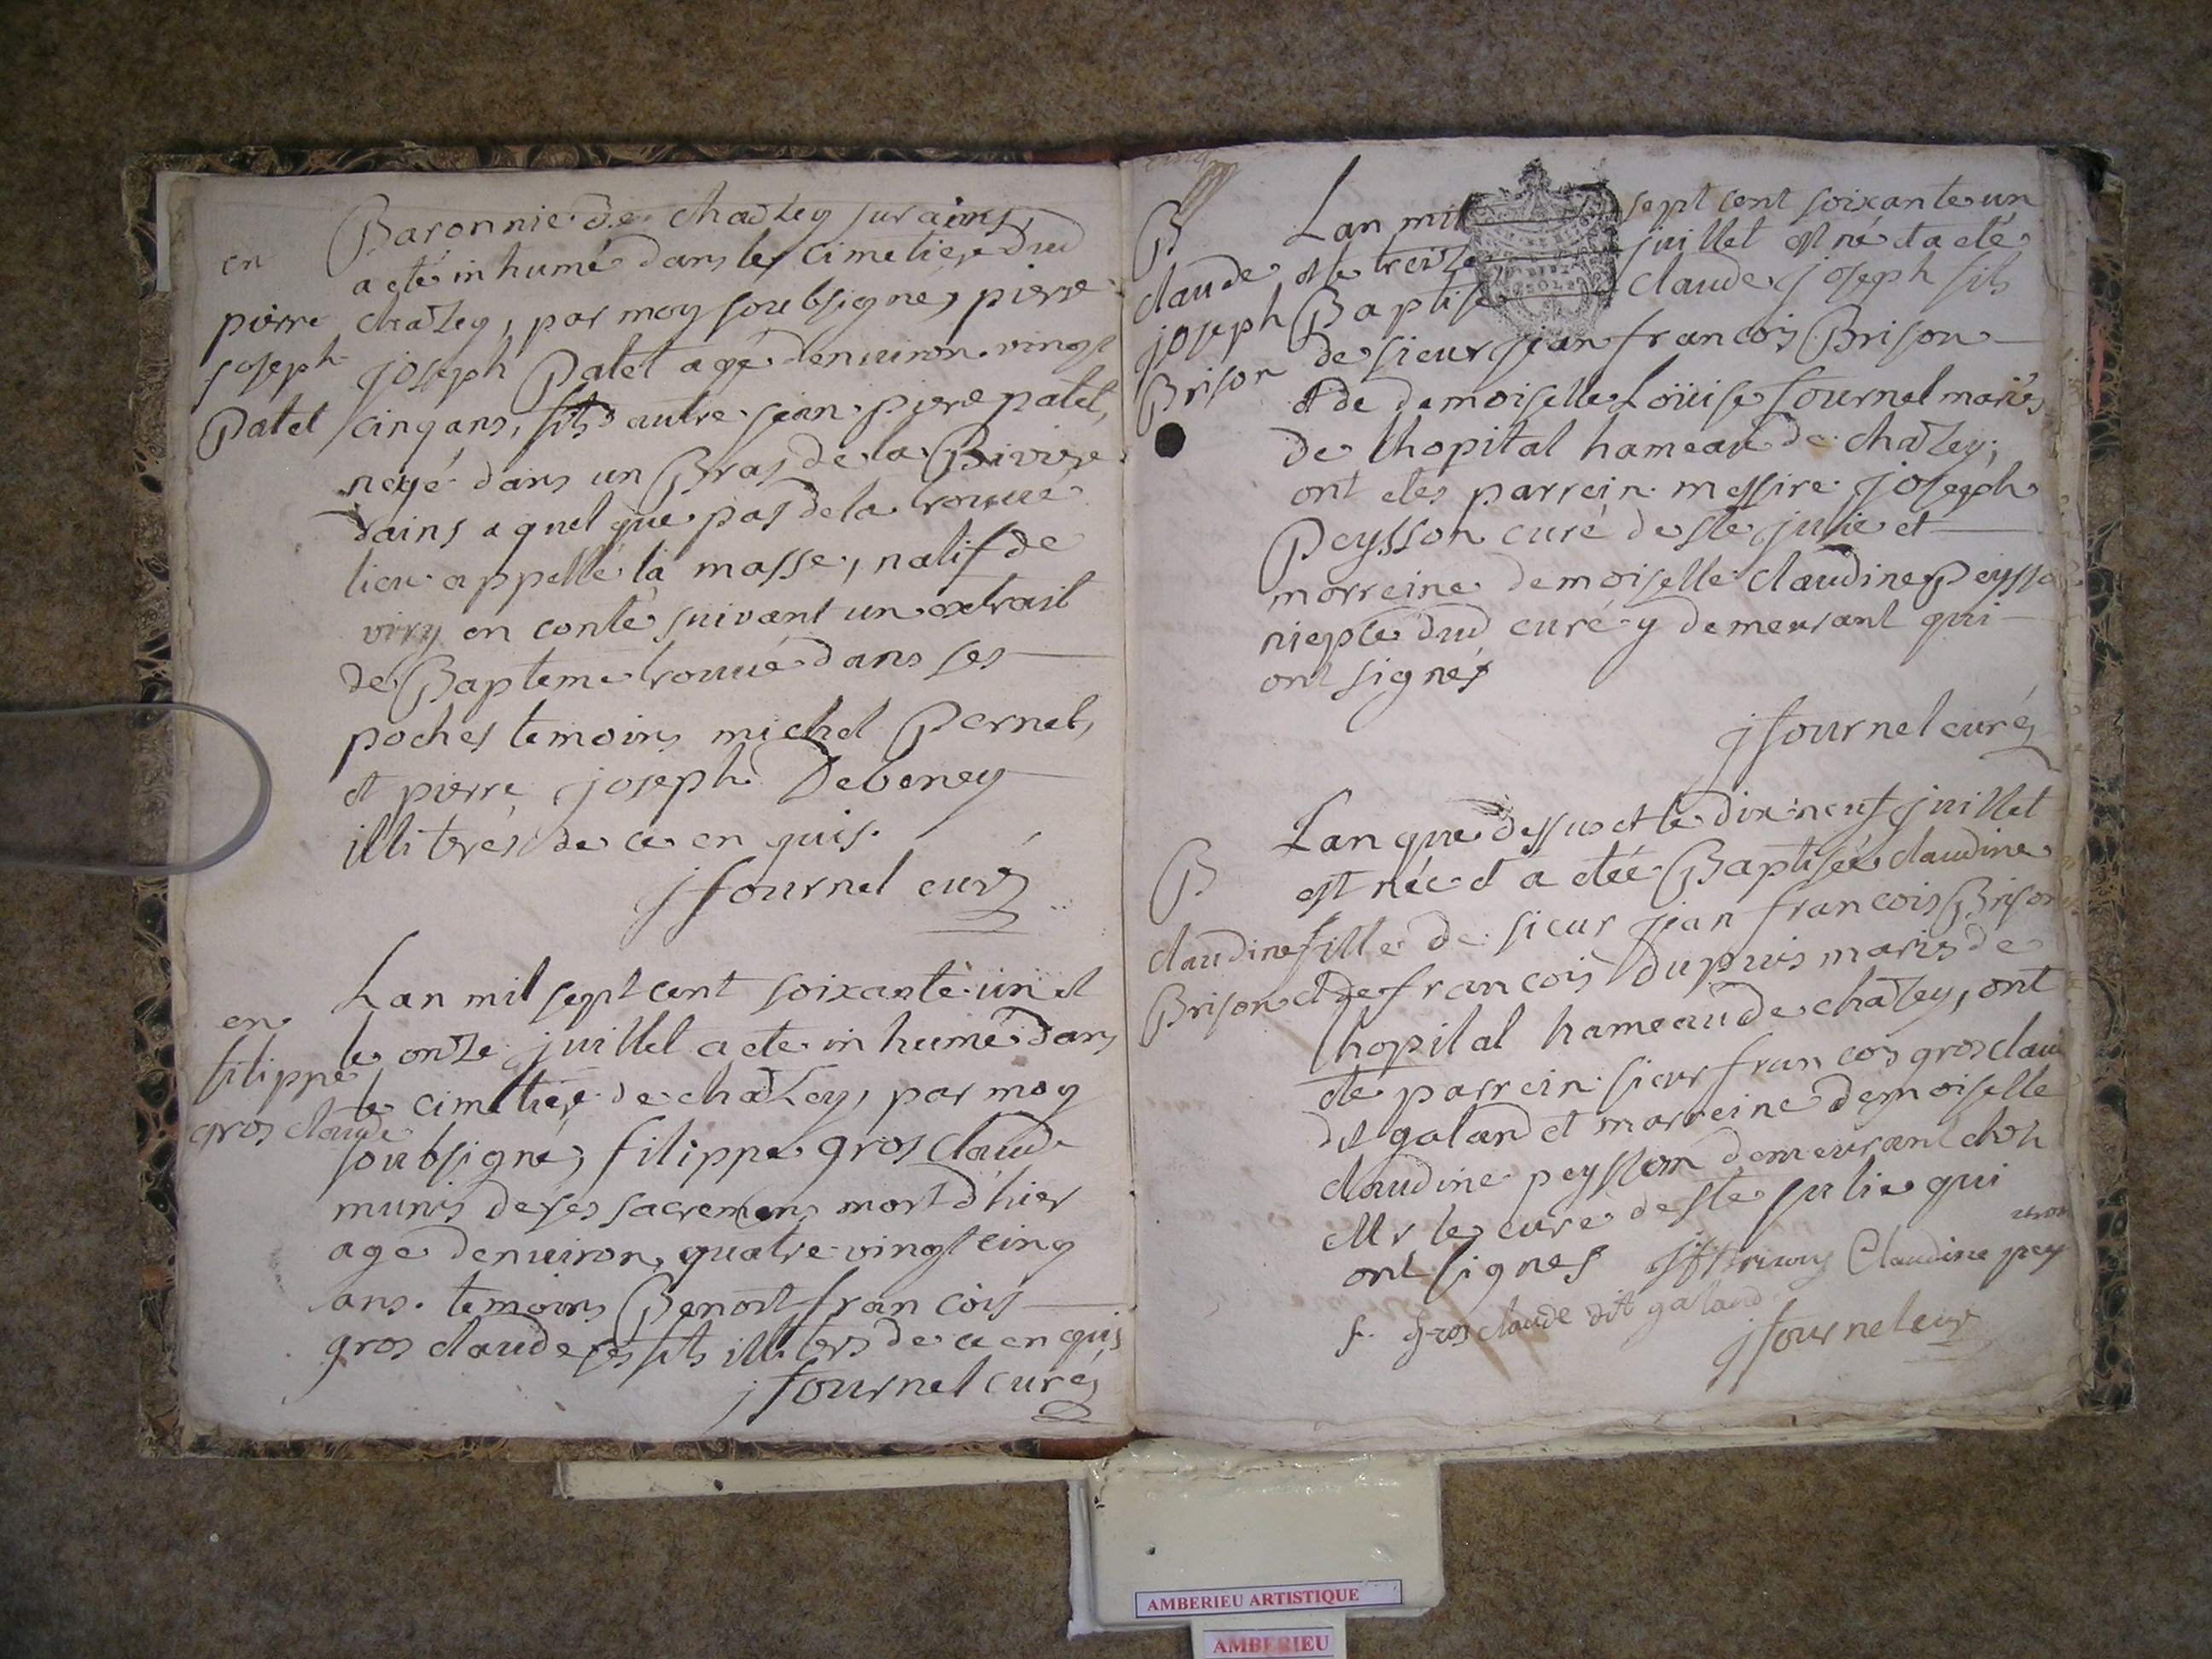 Baronnie de chazey sur ains,
en
a eté in humé dans le Cimetiere dud
pierre
chazey, par moy soubsigné, pierre
joseph
joseph Patet agé denuiron vingt
Patet
cinq ans, fils d'autre jean piere patet,
noyé dans un Bras de la Riviere
dains a quel que pas de la trouué
lieu appellé la masse, natif de
viry en conté suivant un extrait
de Bapteme trouué dans ses
poches temoins michel Pernet,
et pierre joseph Deboney
illiterés de ce en quis.
j fournel curé
Lan mil sept cent soixante un et
en
le onze juillet a ete in humé dans
filippe
le cimetiere de chazey, par moy
gros claude
soubsigné, filippe gros claude
munis de ses sacremens mort d'hier
age denuiron quatre vingt cinq
ans. temoins Benoit francois
gros claude ses fils illiters de ce en quis
j fournel curé
Lan mil sept cent soixante un
B
et le treize juillet est né et a eté
claude
Baptisé claude joseph fils
joseph
de sieur jean francois Brison
Brison
et de demoiselle Loüise fournel mariés
de lhopital hameau de chazey;
ont etes parrein messire joseph
Peysson curé de ste julie et
marreine demoiselle claudine Peysso
niepce dud curé y demeurant qui
ont signés
j fournel curé
Lan que dessus et le dix neuf juillet
B
est née et a etée Baptisée claudine
claudine
fille de sieur jean francois Brison
Brison
et de francois dupuis mariés de
lhopital hameau de chazey, ont
ete parrein sieur francois gros claude
dit galand et marreine demoiselle
claudine peysson demeurant chez
Mr le curé de ste julie qui
ont signes Claudine pey
f. gros claude dit galand
j fournel cur
AMBERIEU ARTISTIQUE
AMBERIEU